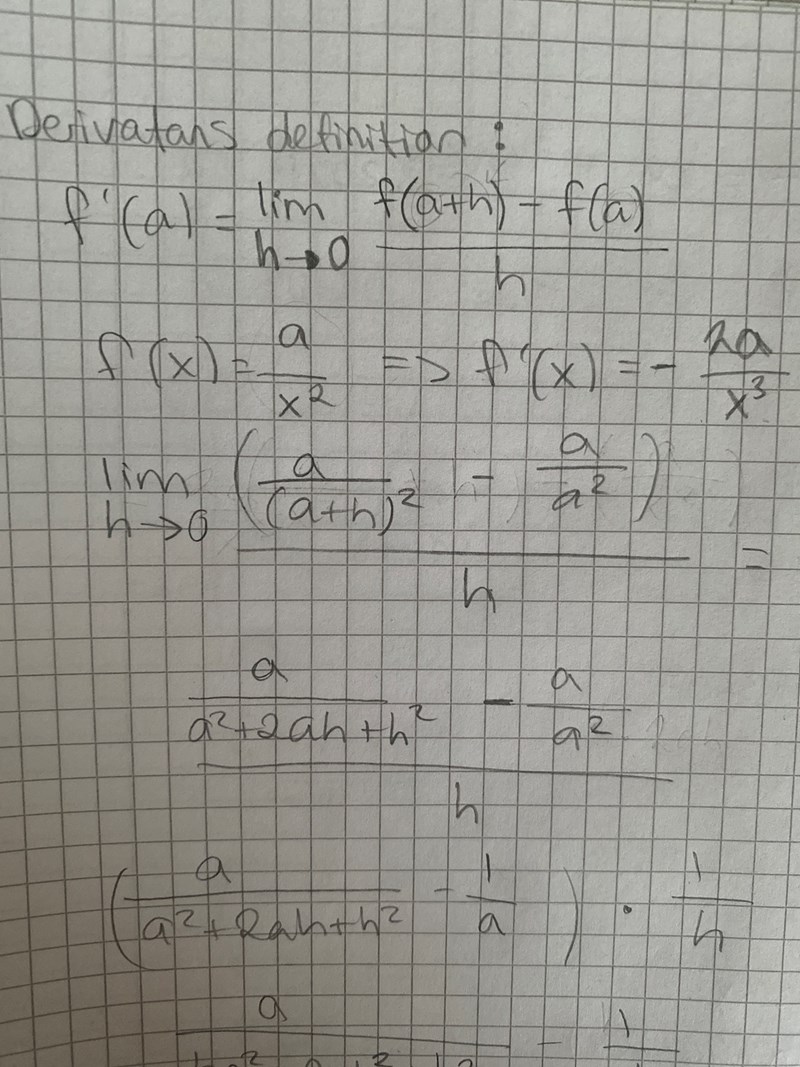 Derivatans definition:
f'(a) = lim h→0 (f(a+h) - f(a)) / h
f(x) = a/x² => f'(x) = - 2a/x³
lim h→0 (a/(a+h)² - a/a²) / h =
(a/(a²+2ah+h²) - a/a²) / h
(a/(a²+2ah+h²) - 1/a) · 1/h
a - 1